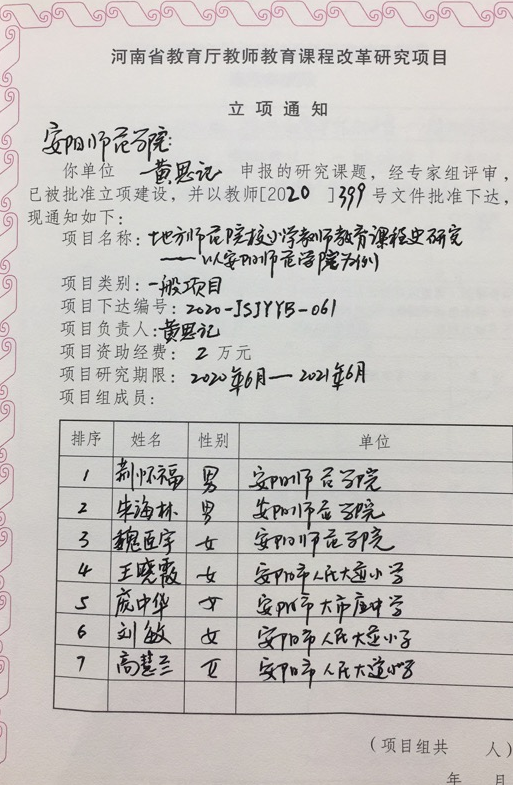 河南省教育厅教师教育课程改革研究项目
立项通知
安阳师范学院:
你单位 黄思记 申报的研究课题，经专家组评审，
已被批准立项建设，并以教师[2020 ]399 号文件批准下达，
现通知如下：
项目名称：地方师范院校小学教师教育课程史研究
——以安阳师范学院为例
项目类别：一般项目
项目下达编号：2020-JSJYYB-061
项目负责人：黄思记
项目资助经费：2 万元
项目研究期限：2020年6月——2021年6月
项目组成员：
排序 姓名 性别 单位
1 荆怀福 男 安阳师范学院
2 朱海林 男 安阳师范学院
3 魏臣宇 女 安阳师范学院
4 王晓霞 女 安阳市人民大道小学
5 庞中华 女 安阳市大市庄中学
6 刘敏 女 安阳市人民大道小学
7 高慧兰 女 安阳市人民大道小学
（项目组共 人）
年 月